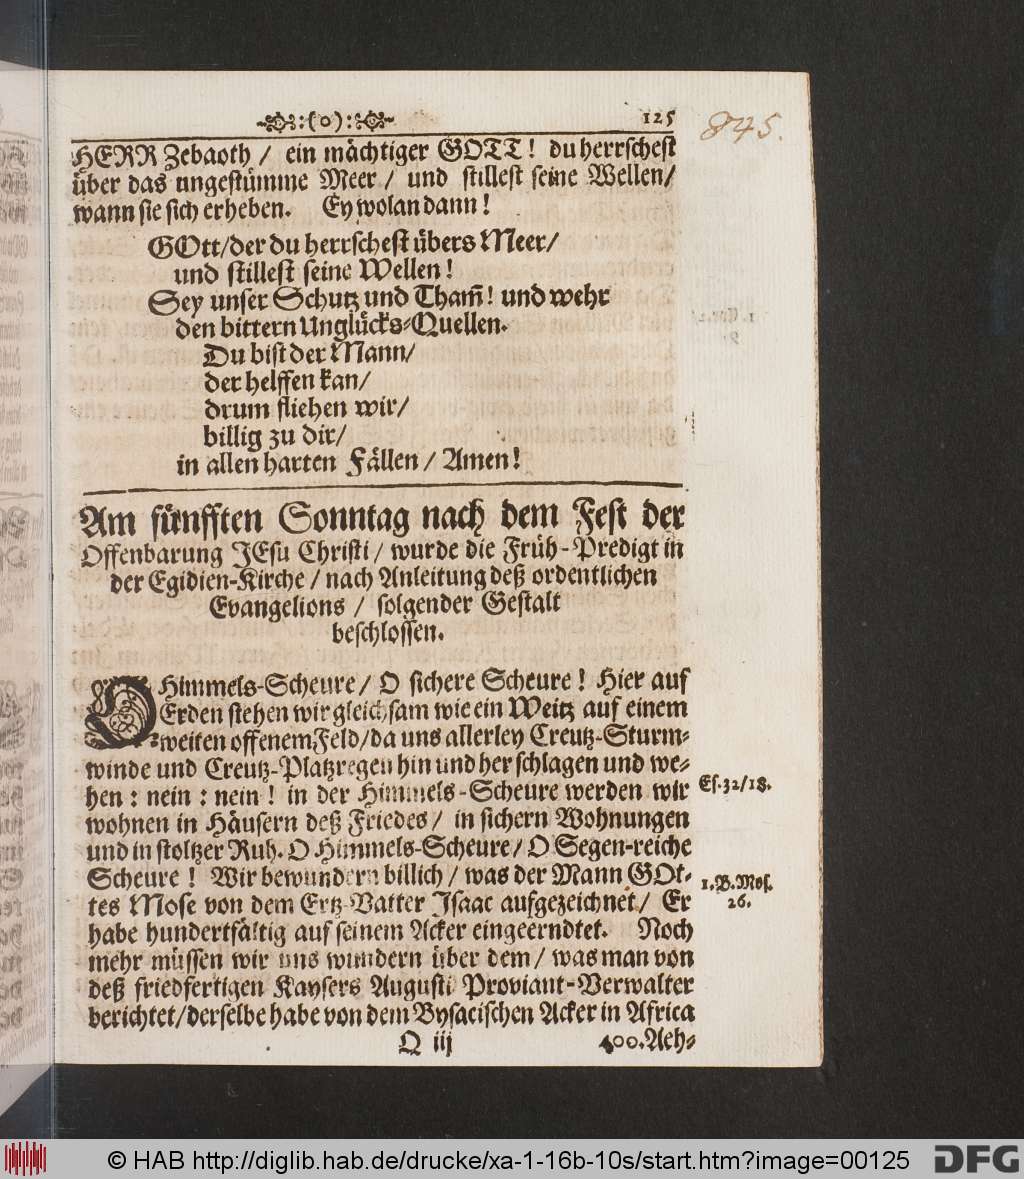 :(o): 125
845.
HERR Zebaoth / ein mächtiger GOTT! du herrschest
über das ungestümme Meer / und stillest seine Wellen/
wann sie sich erheben. Ey wolan dann!
GOtt/der du herrschest übers Meer/
und stillest seine Wellen!
Sey unser Schutz und Tham̃! und wehr
den bittern Unglücks-Quellen.
Du bist der Mann/
der helffen kan/
drum fliehen wir/
billig zu dir/
in allen harten Fällen / Amen!
Am fünfften Sonntag nach dem Fest der
Offenbarung JEsu Christi / wurde die Früh-Predigt in
der Egidien-Kirche / nach Anleitung deß ordentlichen
Evangelions / folgender Gestalt
beschlossen.
O Himmels-Scheure / O sichere Scheure! Hier auf
Erden stehen wir gleichsam wie ein Weitz auf einem
weiten offenem Feld/da uns allerley Creutz-Sturm-
winde und Creutz-Platzregen hin und her schlagen und we-
hen: nein: nein! in der Himmels-Scheure werden wir
Es. 32/18.
wohnen in Häusern deß Friedes / in sichern Wohnungen
und in stoltzer Ruh. O Himmels-Scheure / O Segen-reiche
Scheure! Wir bewundern billich / was der Mann GOt-
1. B. Mos.
tes Mose von dem Ertz-Vatter Isaac aufgezeichnet / Er
26.
habe hundertfältig auf seinem Acker eingeerndtet. Noch
mehr müssen wir uns wundern über dem / was man von
deß friedfertigen Kaysers Augusti Proviant-Verwalter
berichtet/derselbe habe von dem Bysacischen Acker in Africa
Q iij 400. Aeh-
© HAB http://diglib.hab.de/drucke/xa-1-16b-10s/start.htm?image=00125 DFG